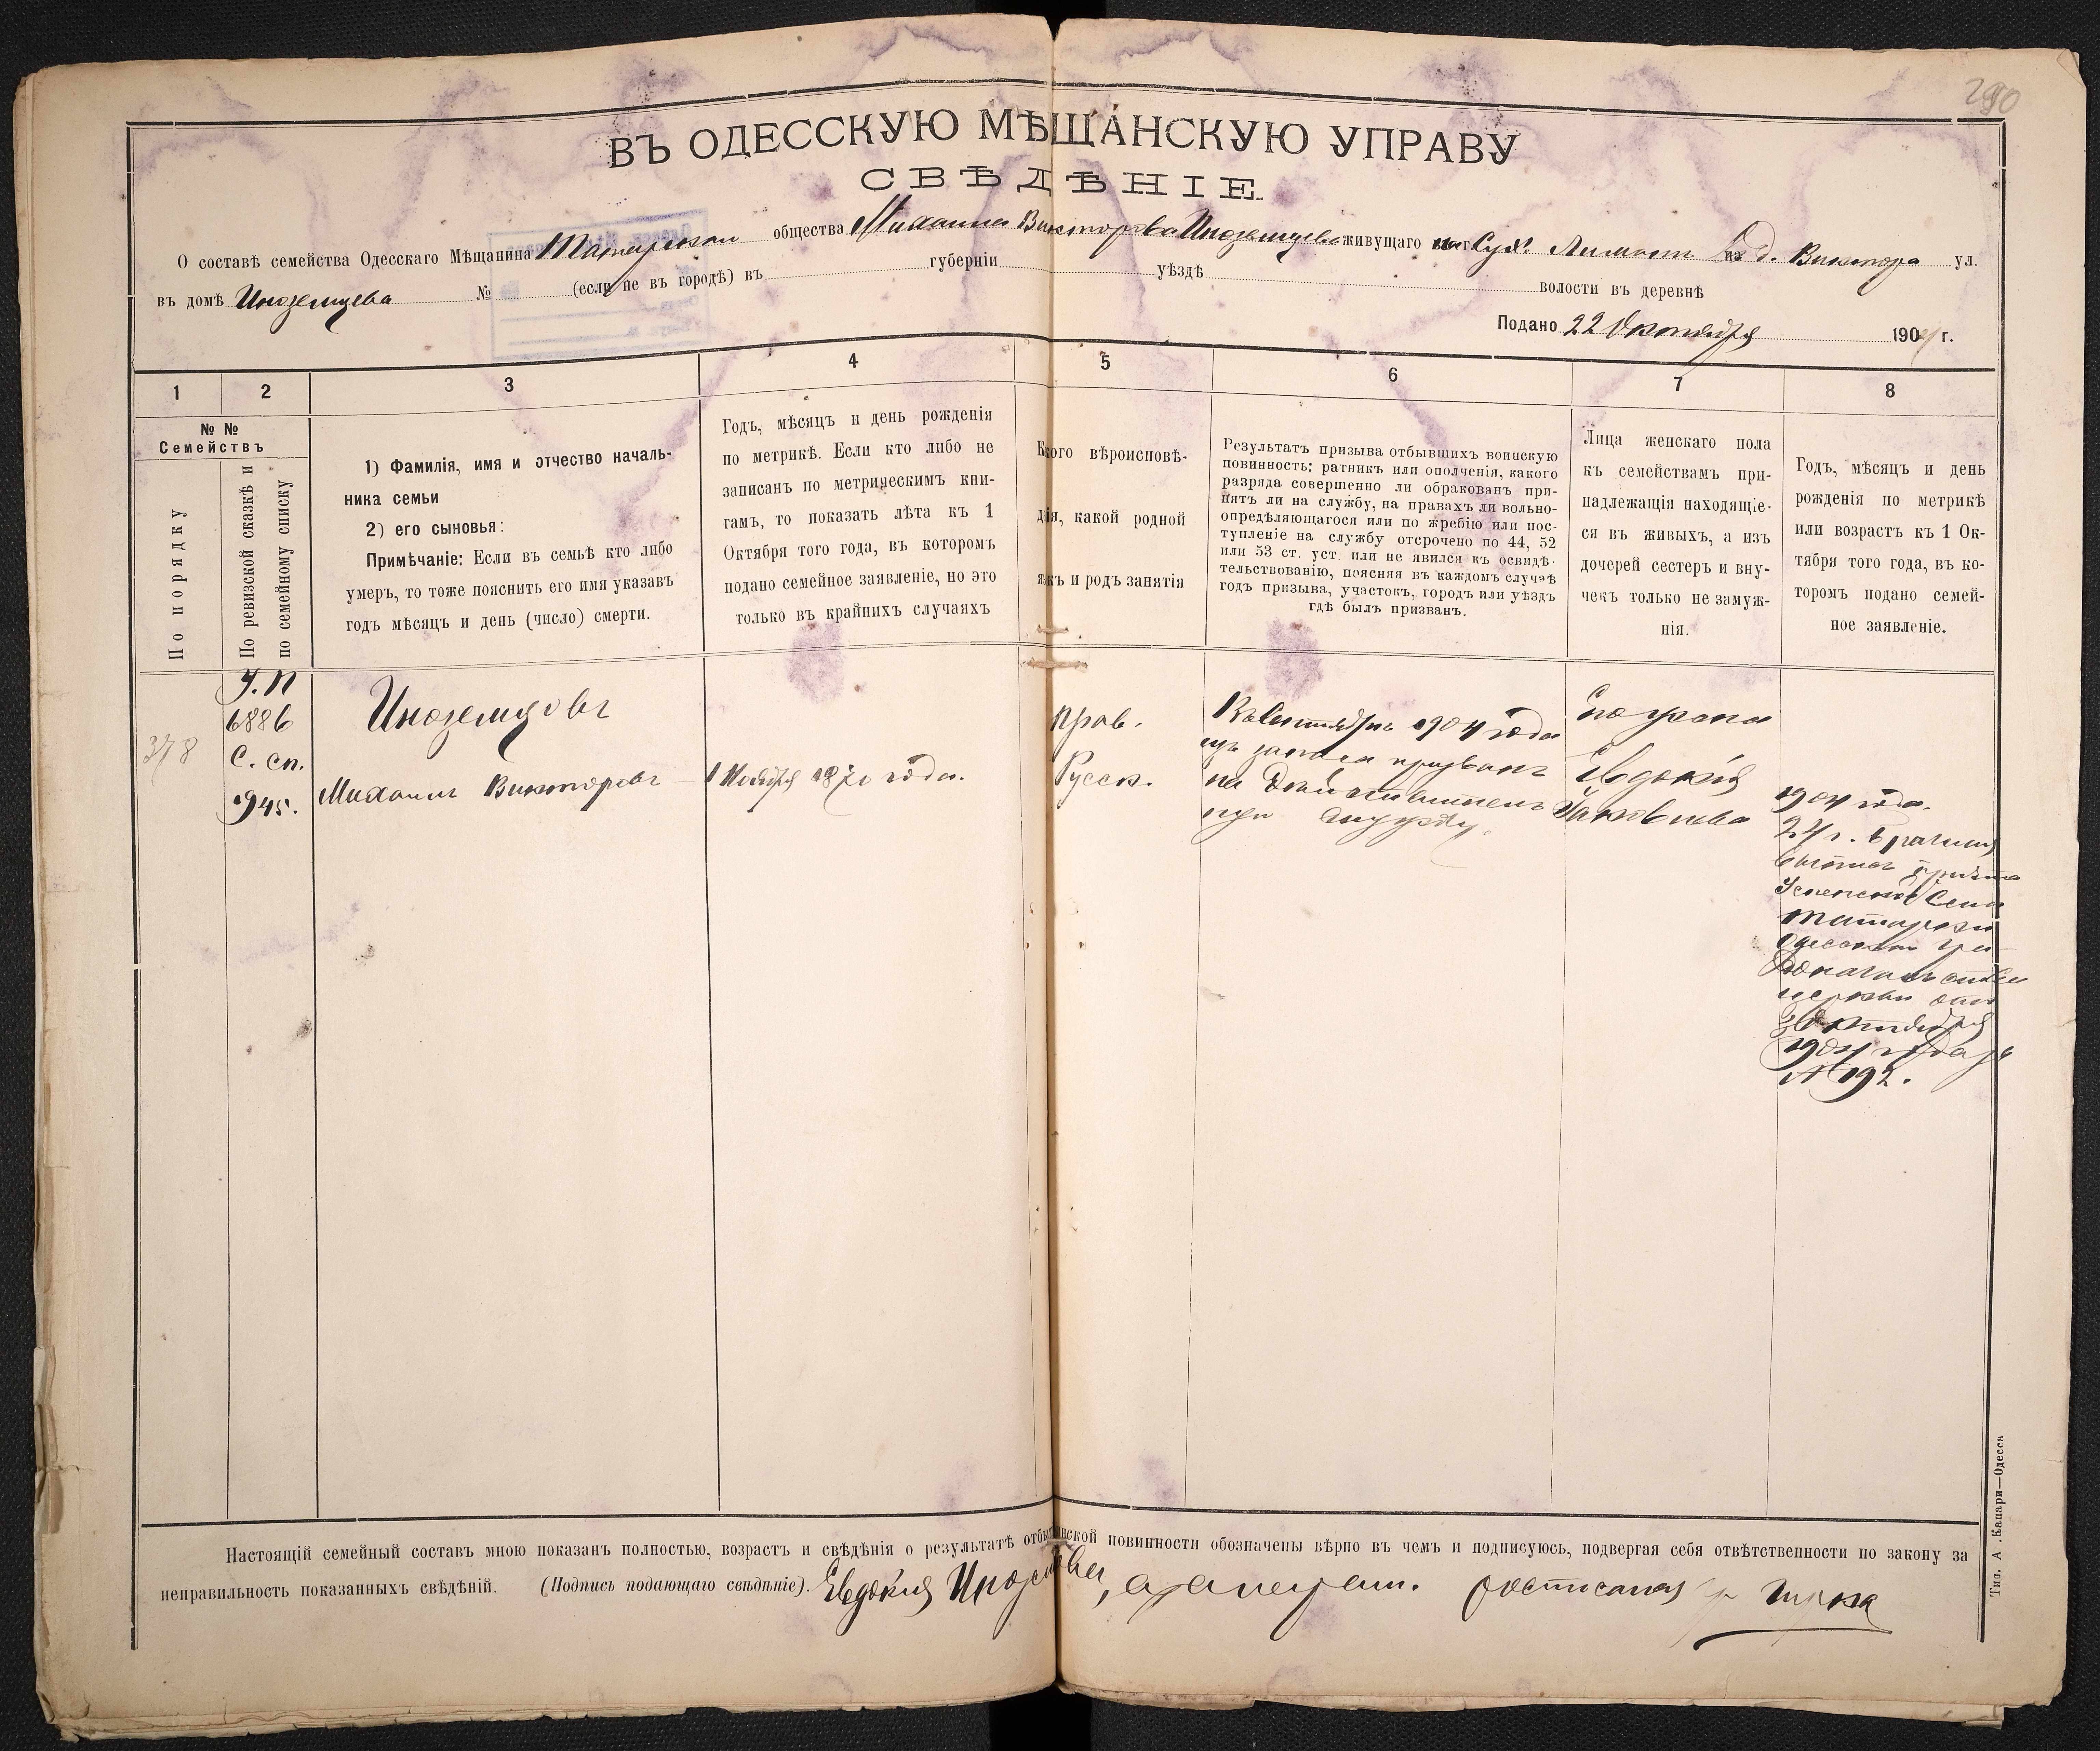 290
ВЪ ОДЕССКУЮ МѢЩАНСКУЮ УПРАВУ
СВѢДѢНІЕ.
О составѣ семейства Одесскаго Мѣщанина Татарскаи общества Михаила Викторова Иноземцева живущаго на Сух. Лиманѣ въ д. Виктора ул.
въ домѣ Иноземцева № (если не въ городѣ) въ губерніи уѣздѣ волости въ деревнѣ
Подано 22 Октября 1904 г.
1 2 3 4 5 6 7 8
№ №
Семействъ
По порядку
По ревизской сказкѣ и
по семейному списку
1) Фамилія, имя и отчество началь-
ника семьи
2) его сыновья:
Примѣчаніе: Если въ семьѣ кто либо
умеръ, то тоже пояснить его имя указавъ
годъ мѣсяцъ и день (число) смерти.
Годъ, мѣсяцъ и день рожденія
по метрикѣ. Если кто либо не
записанъ по метрическимъ кни-
гамъ, то показать лѣта къ 1
Октября того года, въ которомъ
подано семейное заявленіе, но это
только въ крайнихъ случаяхъ
Ккого вѣроисповѣ-
дія, какой родной
язкъ и родъ занятія
Результатъ призыва отбывшихъ воинскую
повинность: ратникъ или ополченія, какого
разряда совершенно ли обракованъ при-
нятъ ли на службу, на правахъ ли вольно-
опредѣляющагося или по жребію или пос-
тупленіе на службу отсрочено по 44, 52
или 53 ст. уст. или не явился къ освидѣ-
тельствованію, поясняя въ каждомъ случаѣ
годъ призыва, участокъ, городъ или уѣздъ
гдѣ былъ призванъ.
Лица женскаго пола
къ семействамъ при-
надлежащія находящіе-
ся въ живыхъ, а изъ
дочерей сестеръ и вну-
чекъ только не замуж-
нія.
Годъ, мѣсяцъ и день
рожденія по метрикѣ
или возрастъ къ 1 Ок-
тября того года, въ ко-
торомъ подано семей-
ное заявленіе.
378
У. П
6886
С. сп.
945.
Иноземцовъ
Михаилъ Викторовъ
1 Ноября 1870 года.
прав.
Русск.
Въ Сентябрѣ 1904 года
изъ запаса призванъ
на Дѣйствительн
ную службу.
Его жена
Евдокія
Яковлева
1904 года.
24 г. брачная
выпись
Успенской
Татарки
Одесскаго Гра
доначальства
церкви отъ
Октября
1904 года за
№ 192.
Настоящій семейный составъ мною показанъ полностью, возрастъ и свѣдѣнія о результатѣ отбы нской повинности обозначены вѣрно въ чемъ и подписуюсь, подвергая себя отвѣтственности по закону за
неправильность показанныхъ свѣдѣній. (Подпись подающаго свѣдѣніе). Евдокія Иноземцева,
Тип. А. Кашари—Одесса